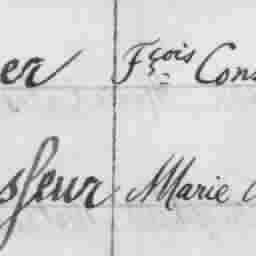 er Fçois Cons
sseur Marie